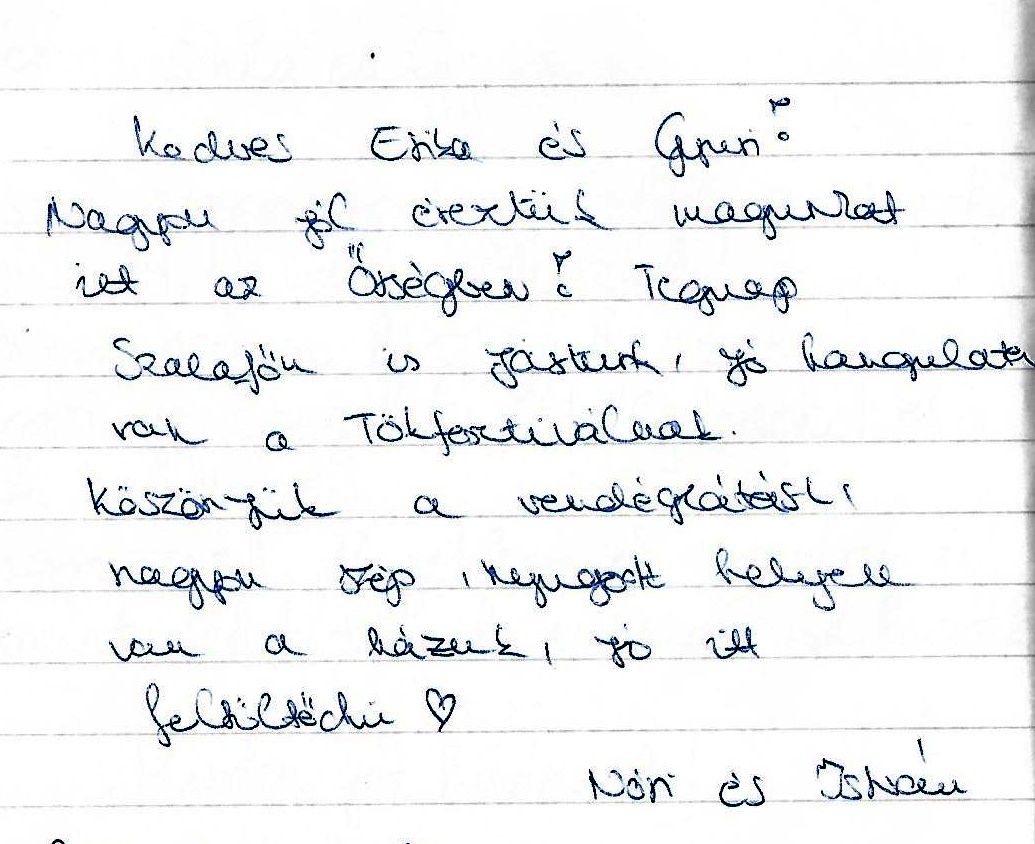 Kedves Erika és Gyuri!
Nagyon jól éreztük magunkat
itt az Őrségben! Tegnap
Szalafőn is jártunk, jó hangulata
van a Tökfesztiválnak.
Köszönjük a vendéglátást,
nagyon szép, nyugodt helyen
van a házuk, jó itt
feltöltődni ♡
Nóri és István